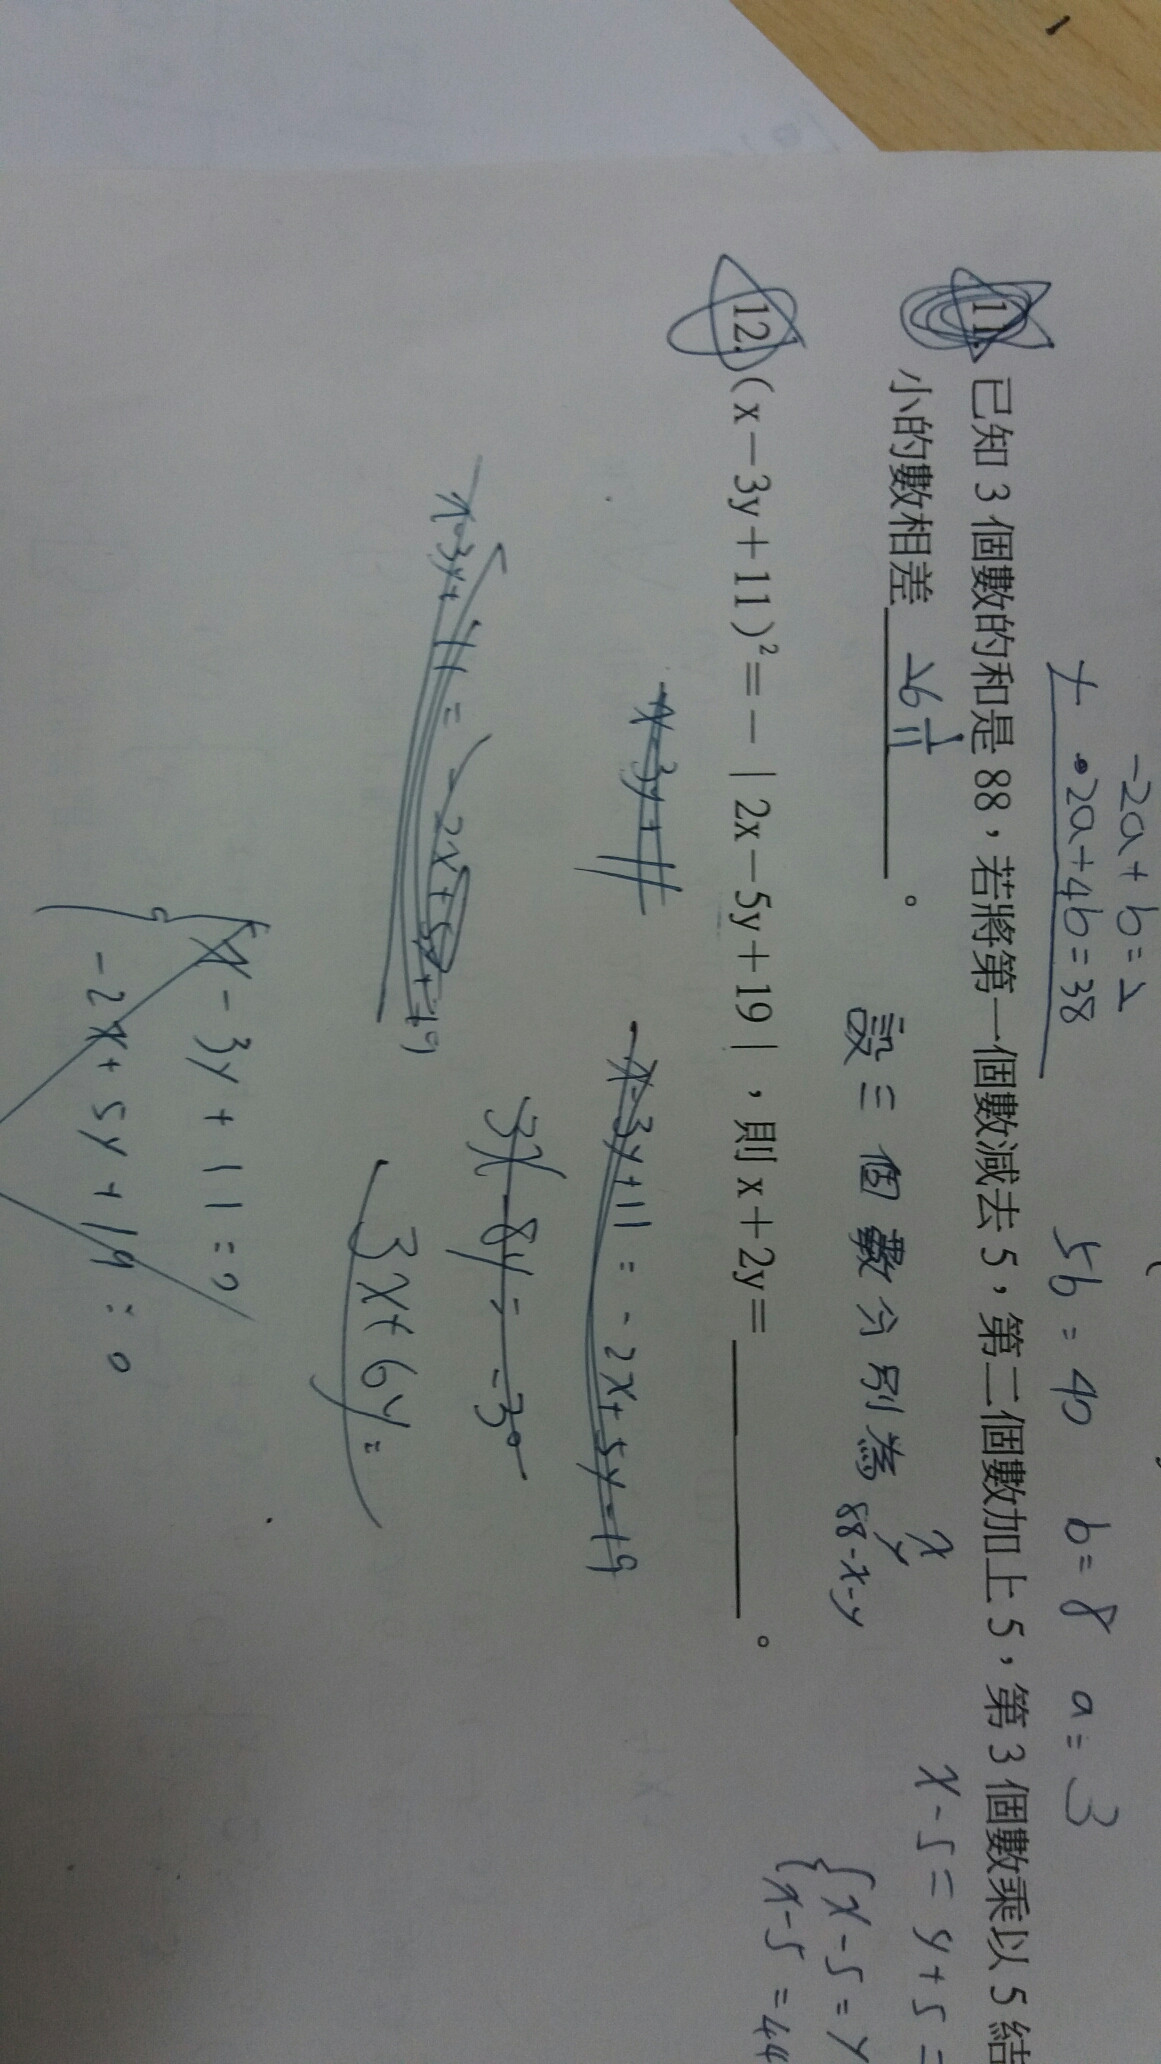 -2a+b=2
+ 2a+4b=38
5b=40 b=8 a=3
11. 已知 3 個數的和是 88，若將第一個數減去 5，第二個數加上 5，第 3 個數乘以 5 結
小的數相差 26 1/11 。
設三個數分別為 x
y
88-x-y
x-5=y+5=
{x-5=y
{x-5=44
12. (x－3y＋11)²＝－｜2x－5y＋19｜，則 x＋2y＝ 。
x-3y+11
x-3y+11=-2x+5y-19
3x-8y=-30
x-3y+11=-2x+5y+19
3x+6y=
x-3y+11=0
-2x+5y+19=0